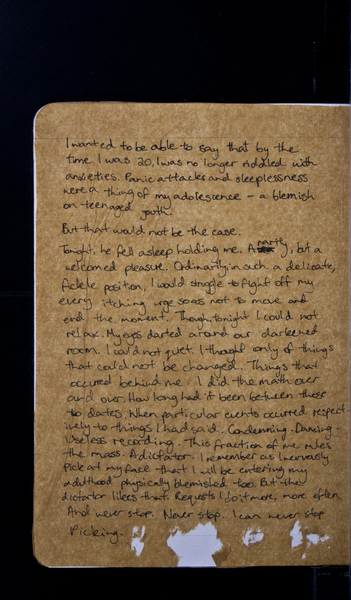 I wanted to be able to say that by the
time I was 20, I was no longer riddled with
anxieties. Panic attacks and sleeplessness
were a thing of my adolescence - a blemish
on teenaged youth.
But that would not be the case.
Tonight, he fell asleep holding me. A rarity, but a
welcomed pleasure. Ordinarily, in such a delicate,
fickle position, I would struggle to fight off my
every itching urge so as not to move and
end the moment. Though, tonight I could not
relax. My eyes darted around our darkened
room. I could not quiet. I thought only of things
that could not be changed. Things that
occured behind me. I did the math over
and over. How long had it been between these
two dates. When particular events occurred, respect-
ively to things I had said. Condemning. Damning.
Useless recording. This fraction of me rules
the mass. A dictator. I remember as I nervously
pick at my face that I will be entering my
adulthood physically blemished too. But the
dictator likes that. Requests I do it more, more often.
And never stop. Never stop. I can never stop
Picking.